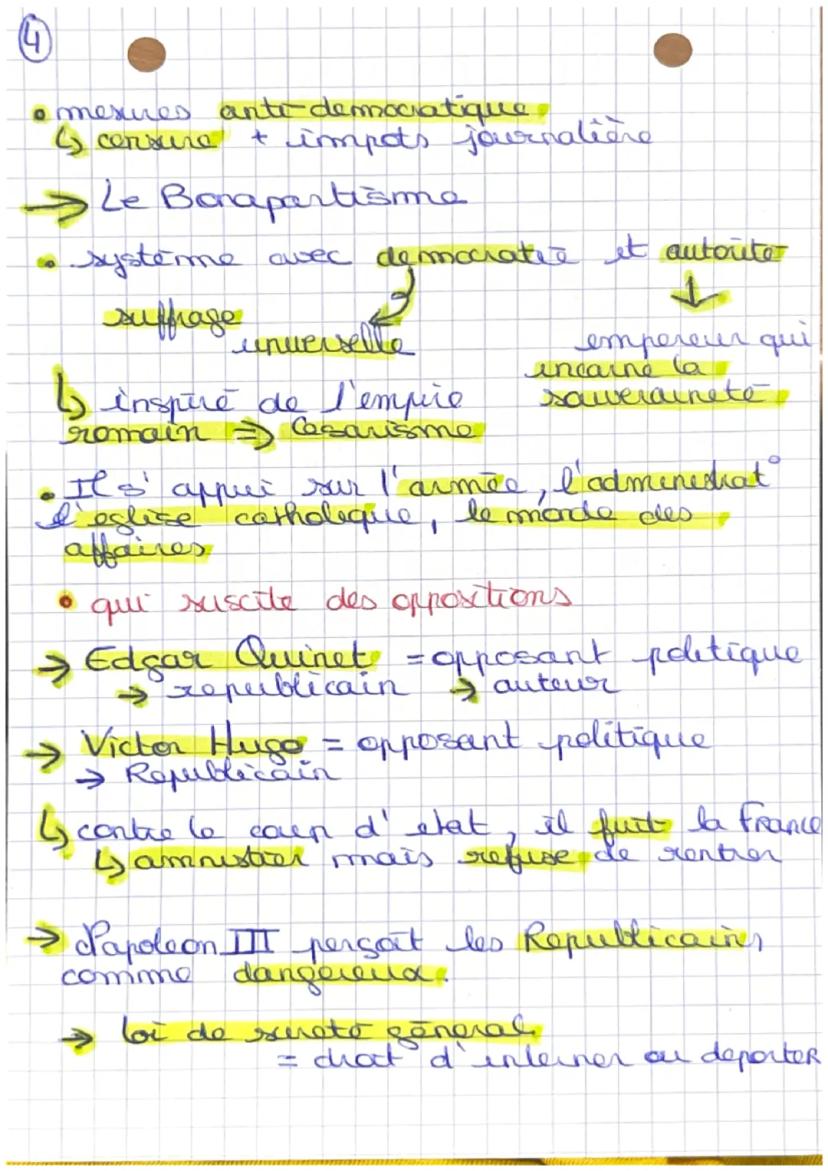 4
• mesures anti-democratique
↳ censure + impots journalière
→ Le Bonapartisme
• système avec democratie et autorite
suffrage
universelle
empereur qui
incarne la
souveraineté
↳ inspiré de l'empire
romain ⇒ Cesarisme
• Il s'appui sur l'armée, l'administrat°
l'eglise catholique, le monde des
affaires
• qui suscite des oppositions
→ Edgar Quinet = opposant politique
→ republicain → auteur
→ Victor Hugo = opposant politique
→ Republicain
↳ contre le coup d'etat, il fuit la France
↳ amnistier mais refuse de rentrer
→ Napoleon III perçoit les Republicains
comme dangereux.
→ loi de sureté général
= droit d'interner ou deporter